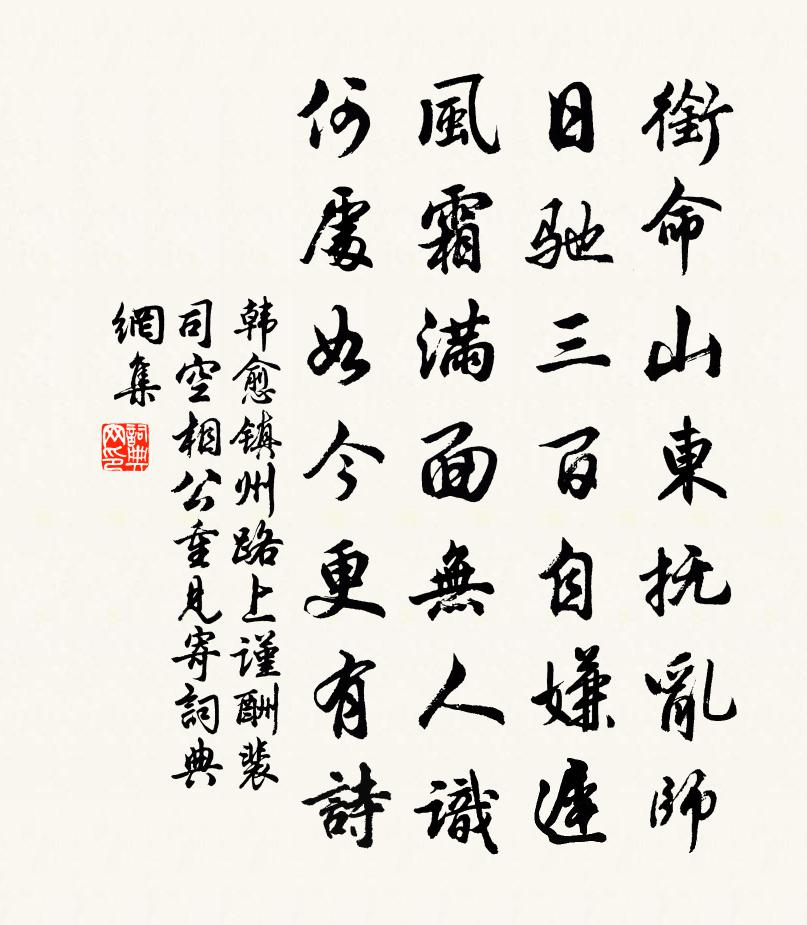 衔命山東抚亂師
日驰三百自嫌遲
風霜满面無人識
何處如今更有詩
韩愈镇州路上谨酬裴
司空相公重見寄詞典
網集
詞典
网印